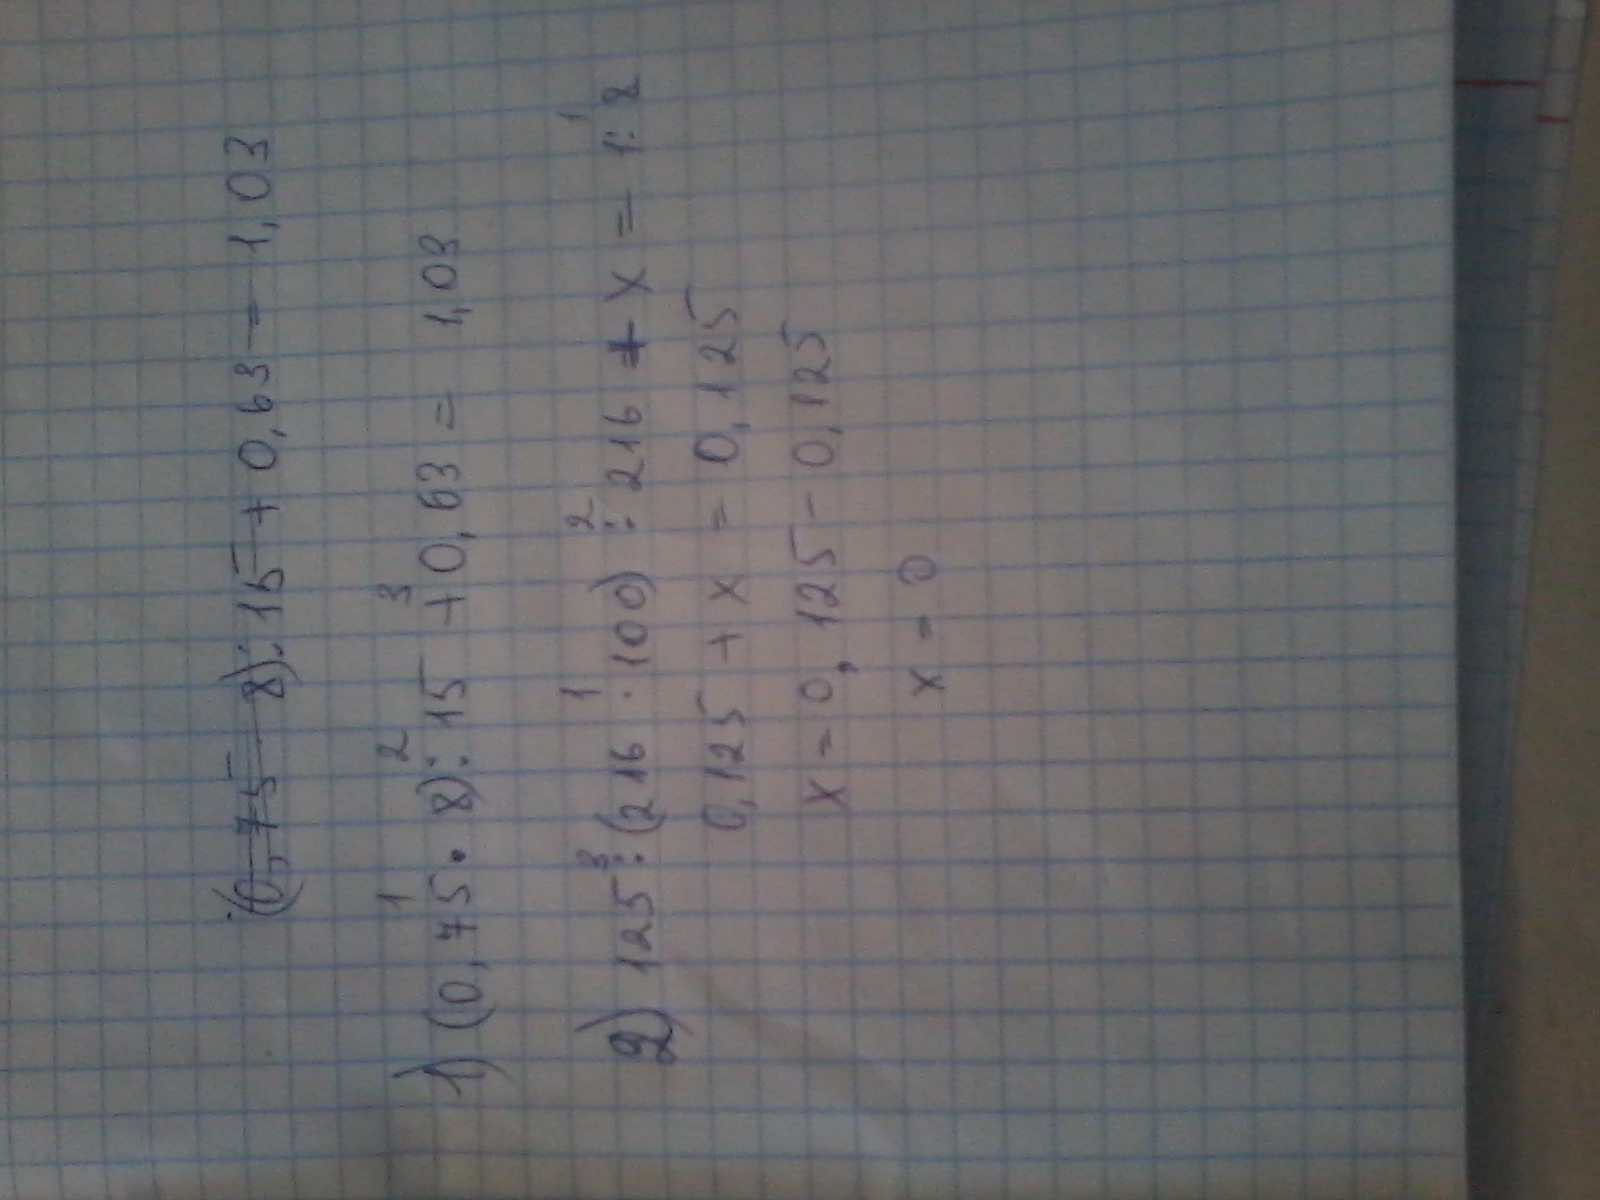 (0,75 8):15+0,63=1,03
1) (0,75 · 8):15 +0,63 = 1,03
1 2 3
2) 125:(216 · 100):216 + x = 1:8
3 1 2 1
0,125 + x = 0,125
x = 0,125 - 0,125
x = 0